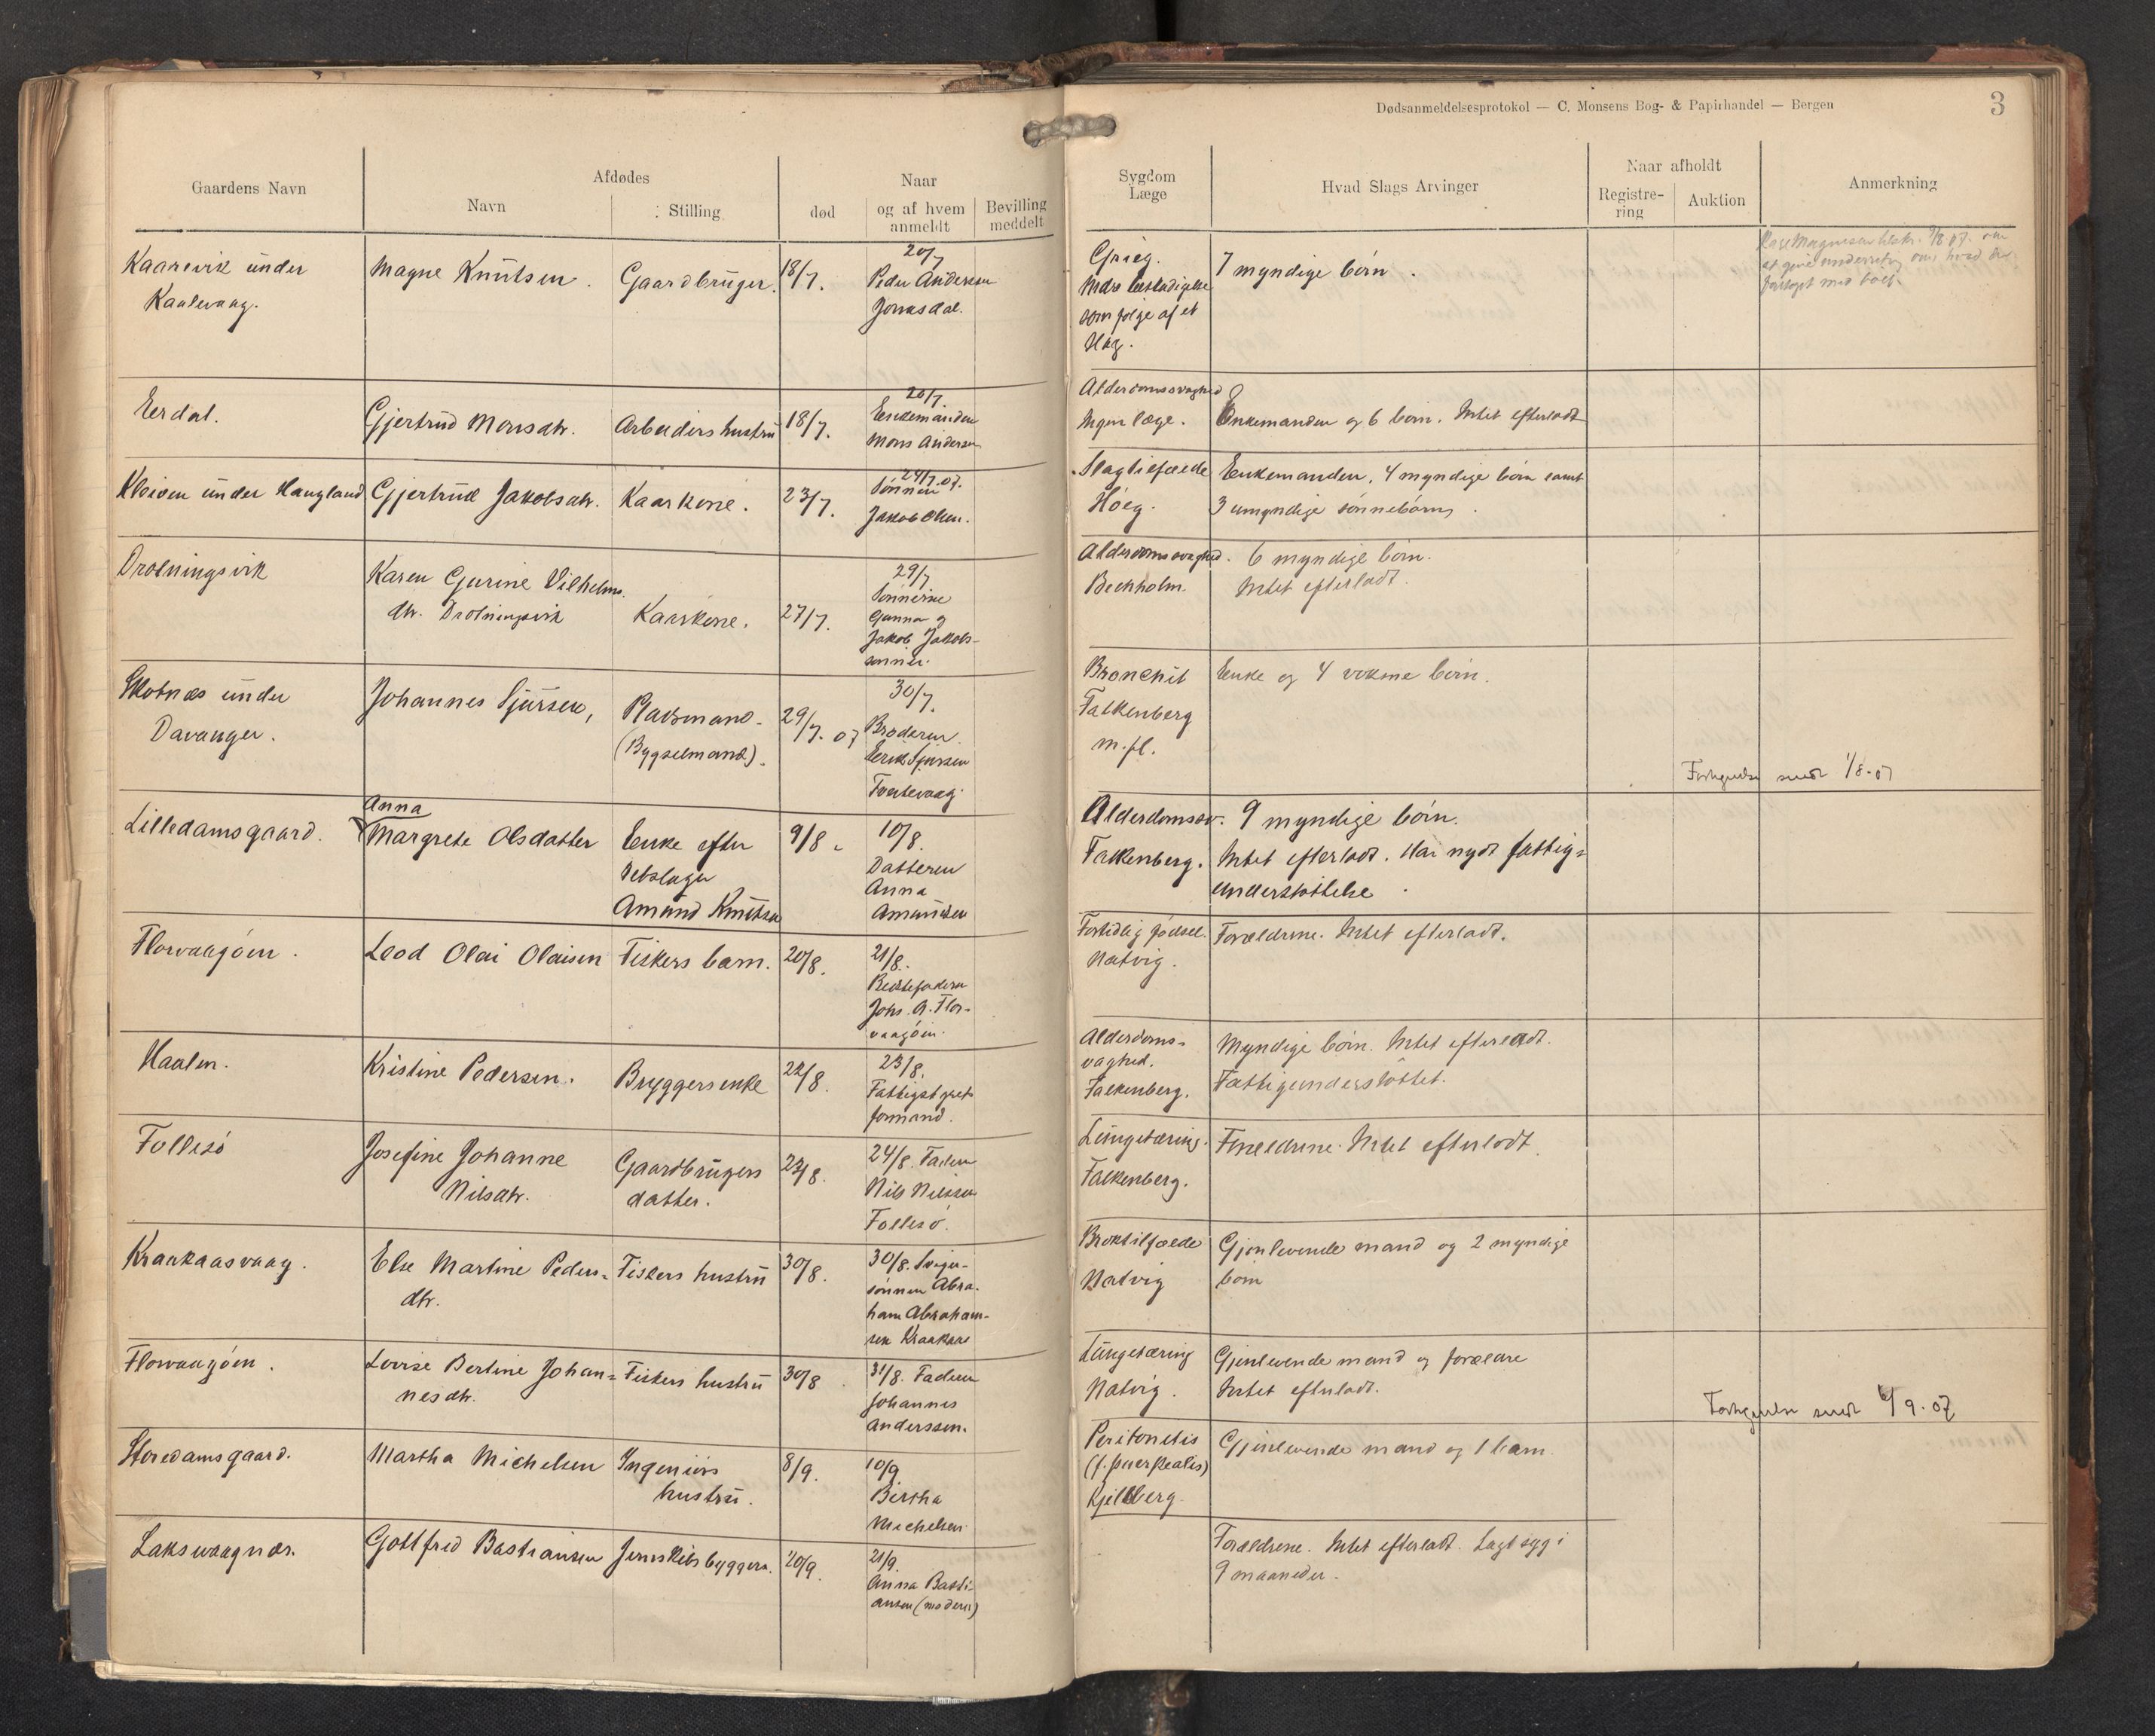 Dødsanmeldelsesprotokol — C. Monsens Bog- & Papirhandel — Bergen
3
Gaardens Navn
Afdødes
Navn
Stilling
død
Naar
og af hvem
anmeldt
Bevilling
meddelt
Sygdom
Læge
Hvad Slags Arvinger
Naar afholdt
Registre-
ring
Auktion
Anmerkning
Kaarevik under
Kaalevaag.
Magne Knutsen.
Gaardbruger.
18/7.
20/7
Peder Andersen
Jonasdal.
Grieg.
Indre beskadigelse
som følge af et
slag.
7 myndige børn.
Eerdal.
Gjertrud Monsdtr.
Arbeiders hustru
18/7.
20/7.
Enkemanden
Mons Andersen
Alderdomssvaghed
Ingen læge.
Enkemanden og 6 børn. Intet efterladt
Kleiven under Haugland
Gjertrud Jakobsdtr.
Kaarkone.
23/7.
24/7.07.
Sønnen
Jakob Olsen.
Slagtilfælde
Høeg.
Enkemanden, 4 myndige børn samt
3 umyndige sønnebørn.
Drotningsvik
Karen Gurine Vilhelms
dtr. Drotningsvik
Kaarkone.
27/7.
29/7
Sønnerne
Gunnar og
Jakob Jakobs-
sønner.
Alderdomssvaghed.
Bechholm.
6 myndige børn.
Intet efterladt.
Skotnæs under
Davanger.
Johannes Sjursen,
Pladsmand.
(Bygselmand).
29/7. 07
30/7.
Broderen
Erik Sjursen
Tvertevaag
Bronchit
Falkenberg
m.fl.
Enke og 4 voksne børn.
sendt 1/8-07
Lilledamsgaard.
Anna
Margrete Olsdatter
Enke efter
rebslager
Amund Knutsen
9/8.
10/8.
Datteren
Anna
Amundsen
Alderdomssv.
Falkenberg.
9 myndige børn.
Intet efterladt. Har nydt fattig=
understøttelse.
Florvaagøen.
Leod Olai Olaisen
Fiskers barn.
20/8.
21/8.
Bedstefaderen
Johs. A. Flor-
vaagøen.
Fortidlig fødsel.
Natvig.
Forældrene. Intet efterladt.
Haalen.
Kristine Pedersen.
Bryggers enke
22/8.
23/8.
Fattigstyrets
formand.
Alderdoms=
svaghed.
Falkenberg.
Myndige børn. Intet efterladt.
Fattigunderstøttet.
Follesø
Josefine Johanne
Nilsdtr.
Gaardbrugers
datter.
24/8. Faderen
Nils Nilssen
Follesø.
Lungetæring.
Falkenberg.
Forældrene. Intet efterladt.
Kraakaasvaag.
Else Martine Peders=
dtr.
Fiskers hustru
30/8.
30/8. Sviger-
sønnen Abra-
ham Abraham-
sen Kraakaas
Broktilfælde
Natvig
Gjenlevende mand og 2 myndige
børn
Florvaagøen.
Lovise Bertine Johan=
nesdtr.
Fiskers hustru
30/8
31/8. Faderen
Johannes
Anderssen.
Lungetæring
Natvig.
Gjenlevende mand og forældre
Intet efterladt.
sendt 6/9.07
Storedamsgaard.
Martha Michelsen
Ingeniørs
hustru.
8/9.
10/9
Bertha
Michelsen
Peritonitis
(f. puerperalis)
Kjellberg.
Gjenlevende mand og 1 barn.
Laksevaagnæs.
Gottfred Bastiansen
Jernskibsbygger.
20/9.
21/9.
Anna Basti-
ansen (moderen)
Forældrene. Intet efterladt. Lagt syg i
9 maaneder.